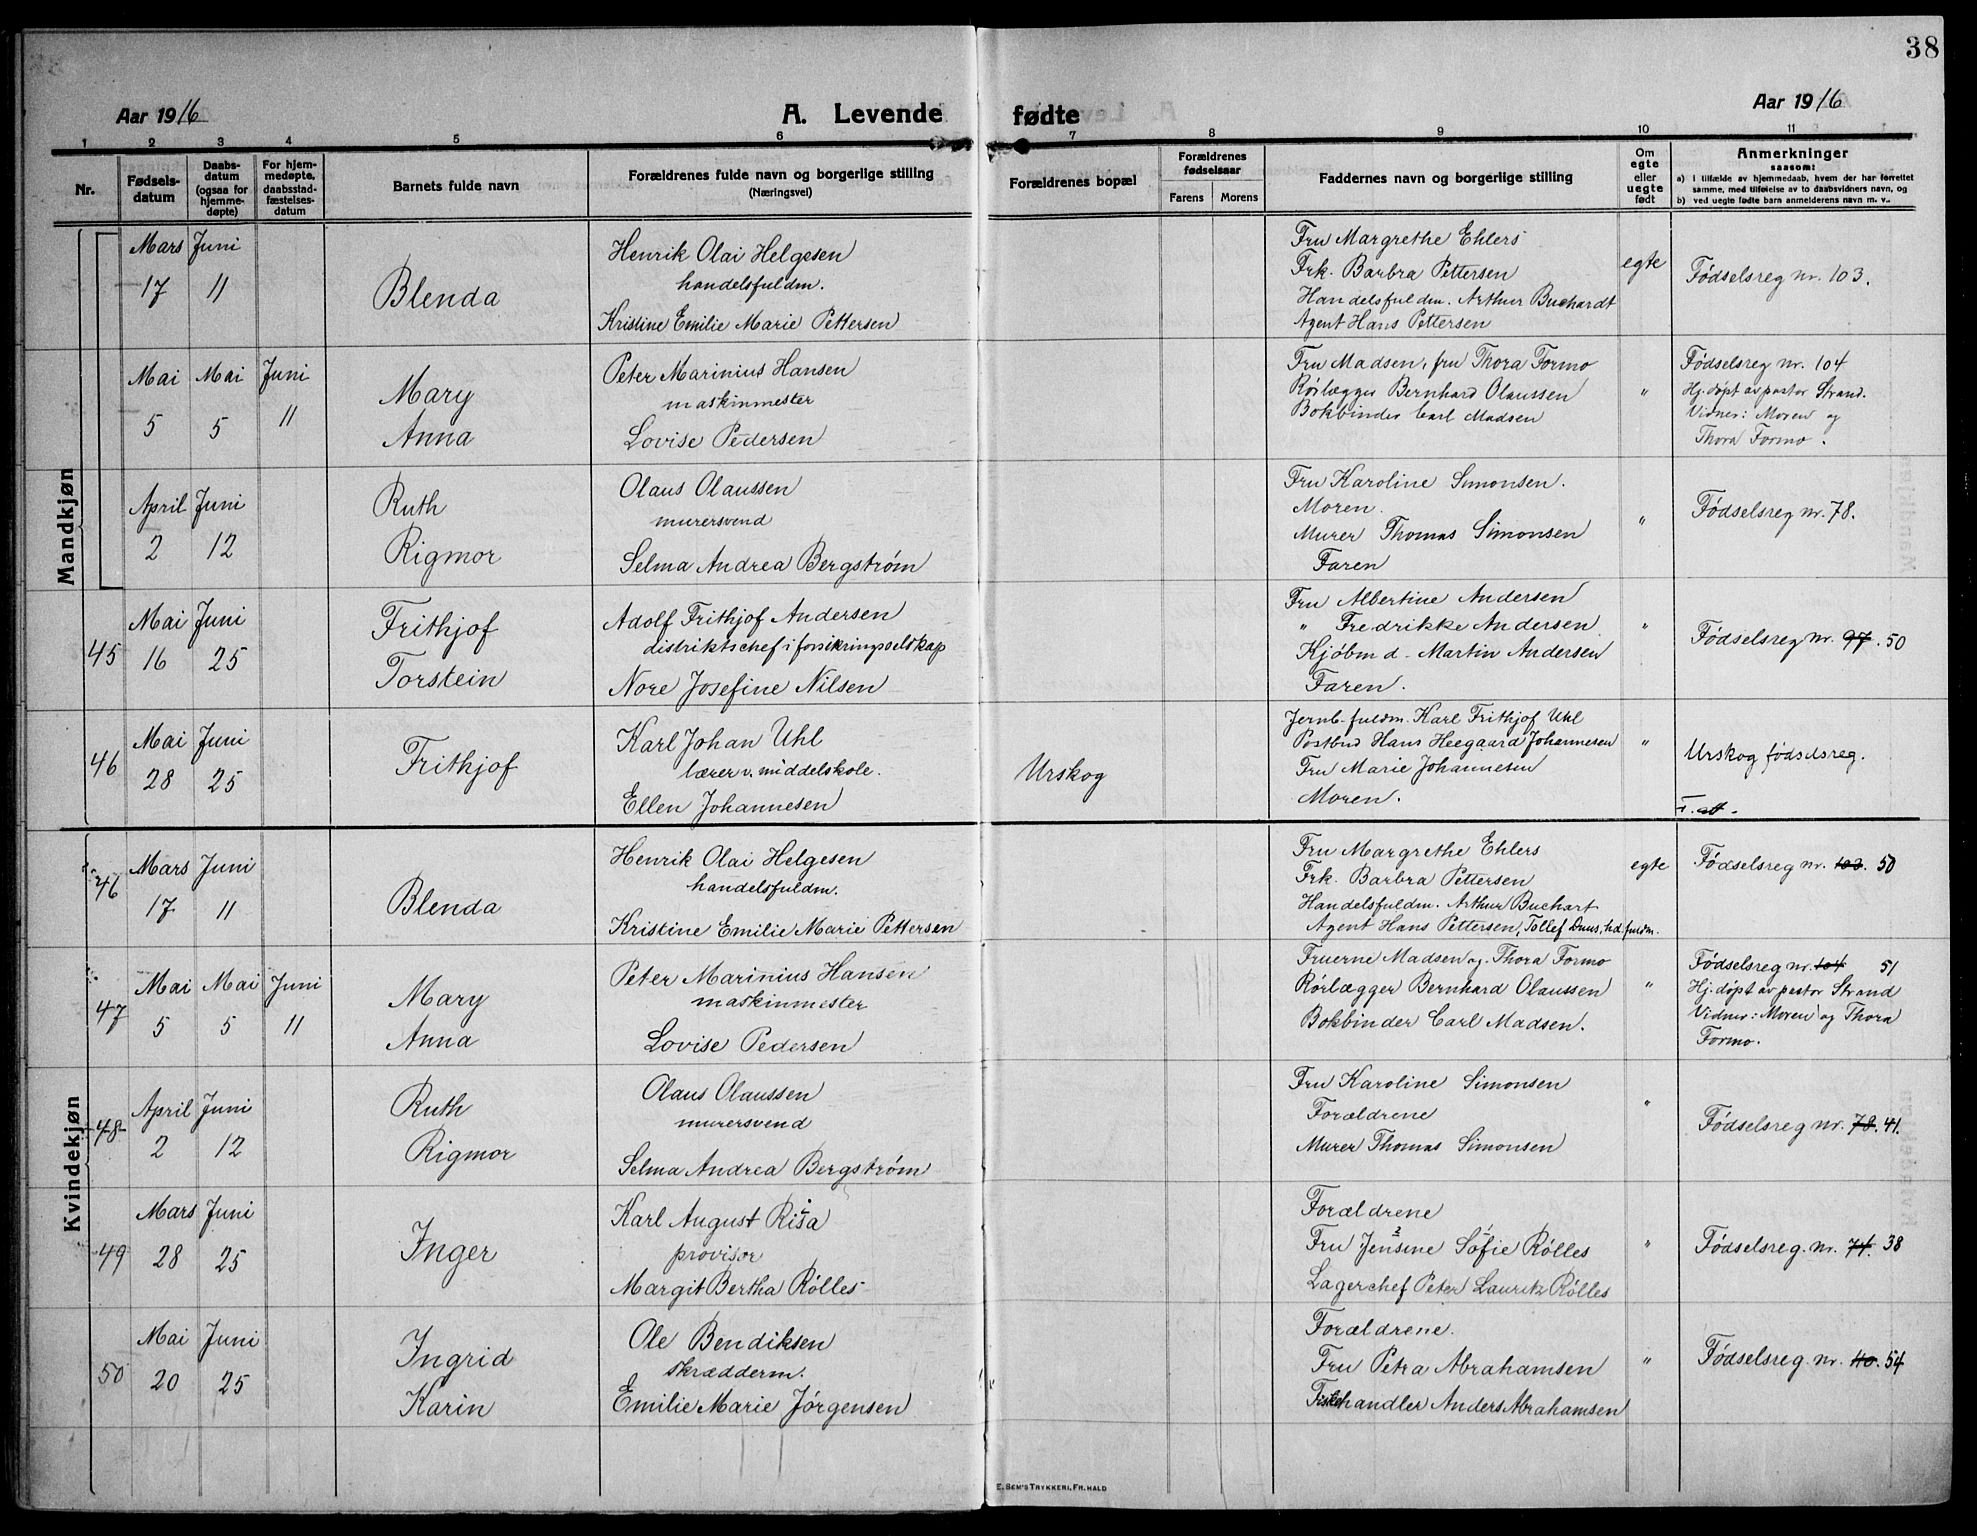 38
Aar 1916
A. Levende fødte
Aar 1916
1 2 3 4 5 6 7 8 9 10 11
Nr.
Fødsels-
datum
Daabs-
datum
(ogsaa for
hjemme-
døpte)
For hjem-
medøpte,
daabsstad-
fæstelses-
datum
Barnets fulde navn
Forældrenes fulde navn og borgerlige stilling
(Næringsvei)
Forældrenes bopæl
Forældrenes
fødselsaar
Farens Morens
Faddernes navn og borgerlige stilling
Om
egte
eller
uegte
født
Anmerkninger
saasom:
a) i tilfælde av hjemmedaab, hvem der har forrettet
samme, med tilføielse av to daabsvidners navn, og
b) ved uegte fødte barn anmelderens navn m. v.
Mandkjøn
Mars Juni
17 11
Blenda
Henrik Olai Helgesen
handelsfuldm.
Kristine Emilie Marie Pettersen
Fru Margrethe Ehlers
Frk. Barbra Pettersen
Handelsfuldm. Arthur Buchardt
Agent Hans Pettersen
egte
Fødselsreg nr. 103.
Mai Mai Juni
5 5 11
Mary
Anna
Peter Marinius Hansen
maskinmester
Lovise Pedersen
Fru Madsen, fru Thora Formo
Rørlægger Bernhard Olaussen
Bokbinder Carl Madsen
"
Fødselsreg nr. 104
Hj. døpt av pastor Strand.
Vidner: Moren og
Thora Formo.
April Juni
2 12
Ruth
Rigmor
Olaus Olaussen
murersvend
Selma Andrea Bergstrøm
Fru Karoline Simonsen.
Moren.
Murer Thomas Simonsen
Faren
"
Fødselsreg nr. 78.
45
Mai Juni
16 25
Frithjof
Torstein
Adolf Frithjof Andersen
distriktschef i forsikringsselskap
Nore Josefine Nilsen
Fru Albertine Andersen
" Fredrikke Andersen
Kjøbmd. Martin Andersen
Faren.
"
Fødselsreg nr. 97. 50
46
Mai Juni
28 25
Frithjof
Karl Johan Uhl
lærer v. middelskole.
Ellen Johannesen
Urskog
Jernb. fuldm. Karl Frithjof Uhl
Postbud Hans Heegaard Johannesen
Fru Marie Johannesen
Moren.
"
Urskog fødselsreg.
F. att.
Kvindekjøn
46
Mars Juni
17 11
Blenda
Henrik Olai Helgesen
handelsfuldm.
Kristine Emilie Marie Pettersen
Fru Margrethe Ehlers
Frk. Barbra Pettersen
Handelsfuldm. Arthur Buchart
Agent Hans Pettersen, Tollef Duus, hd.fuldm.
egte
Fødselsreg nr. 103. 50
47
Mai Mai Juni
5 5 11
Mary
Anna
Peter Marinius Hansen
maskinmester
Lovise Pedersen
Fruerne Madsen og Thora Formo
Rørlægger Bernhard Olaussen
Bokbinder Carl Madsen.
"
Fødselsreg nr. 104 51
Hj. døpt av pastor Strand
Vidner: Moren og Thora
Formo.
48
April Juni
2 12
Ruth
Rigmor
Olaus Olaussen
murersvend
Selma Andrea Bergstrøm
Fru Karoline Simonsen
Forældrene
Murer Thomas Simonsen
"
Fødselsreg nr. 78. 41.
49
Mars Juni
28 25
Inger
Karl August Risa
provisor
Margit Bertha Rølles
Forældrene
Fru Jensine Sofie Rølles
Lagerchef Peter Lauritz Rølles
"
Fødselsreg. nr. 74. 38
50
Mai Juni
20 25
Ingrid
Karin
Ole Bendiksen
skrædderm.
Emilie Marie Jørgensen
Forældrene.
Fru Petra Abrahamsen
Fiskehandler Anders Abrahamsen
"
Fødselsreg. nr. 110. 54
E. SEM'S TRYKKERI, FR.HALD